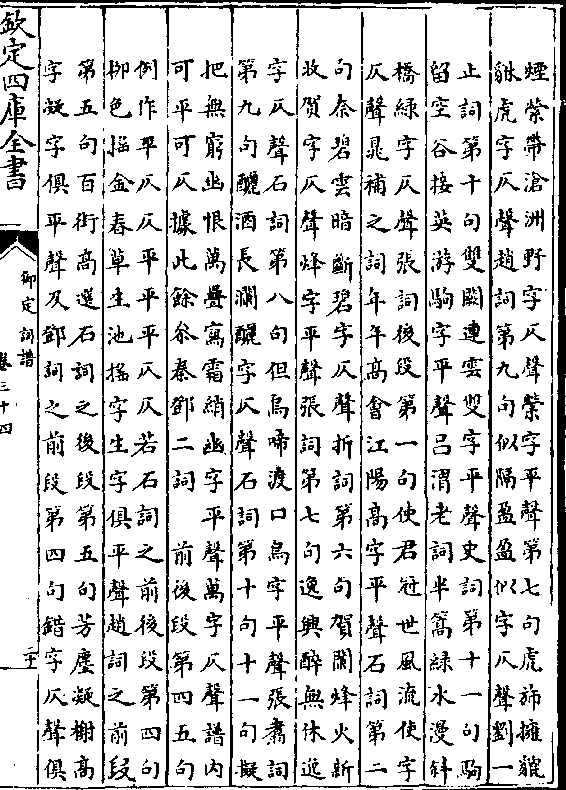 煙縈帶滄洲野字仄聲縈字平聲第七句虎斾擁貔
貅虎字仄聲趙詞第九句似隔盈盈似字仄聲劉一
止詞第十句雙闕連雲雙字平聲史詞第十一句駒
留空谷接英游駒字平聲吕渭老詞半篙緑水漫斜
橋緑字仄聲張詞後段第一句使君冠世風流使字
仄聲晁補之詞年年高會江陽高字平聲石詞第二
句奈碧雲暗斷碧字仄聲折詞第六句賀蘭烽火新
收賀字仄聲烽字平聲張詞第七句逸興醉無休逸
字仄聲石詞第八句但烏啼渡口烏字平聲張肅詞
第九句釃酒長瀾釃字仄聲石詞第十句十一句擬
把無窮幽恨萬疊寫霜綃幽字平聲萬字仄聲譜内
可平可仄據此餘叅秦鄧二詞　前後段第四五句
例作平仄仄平平平仄仄若石詞之前後段第四句
柳色搖金春草生池搖字生字俱平聲趙詞之前段
第五句百衙高選石詞之後段第五句芳塵凝榭高
字凝字俱平聲及鄧詞之前段第四句錯字仄聲俱
欽定四庫全書
御定詞譜
卷三十四
二十